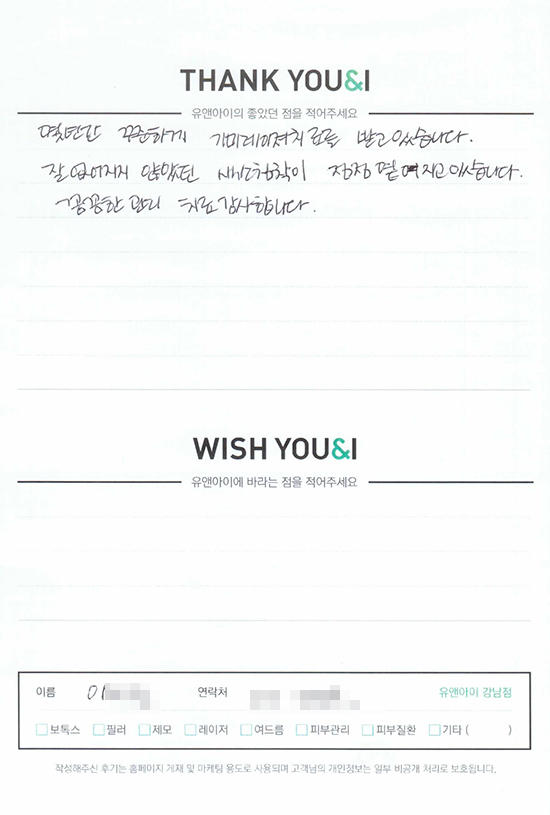 THANK YOU&I
유앤아이의 좋았던 점을 적어주세요
몇년간 꾸준하게 기미레이져치료를 받고있습니다.
잘 없어지지 않았던 색소침착이 점점 옅여지고있습니다.
꼼꼼한 관리 치료 감사합니다.
WISH YOU&I
유앤아이에 바라는 점을 적어주세요
이름 연락처 유앤아이 강남점
보톡스 필러 제모 레이저 여드름 피부관리 피부질환 기타 ( )
작성해주신 후기는 홈페이지 게재 및 마케팅 용도로 사용되며 고객님의 개인정보는 일부 비공개 처리로 보호됩니다.